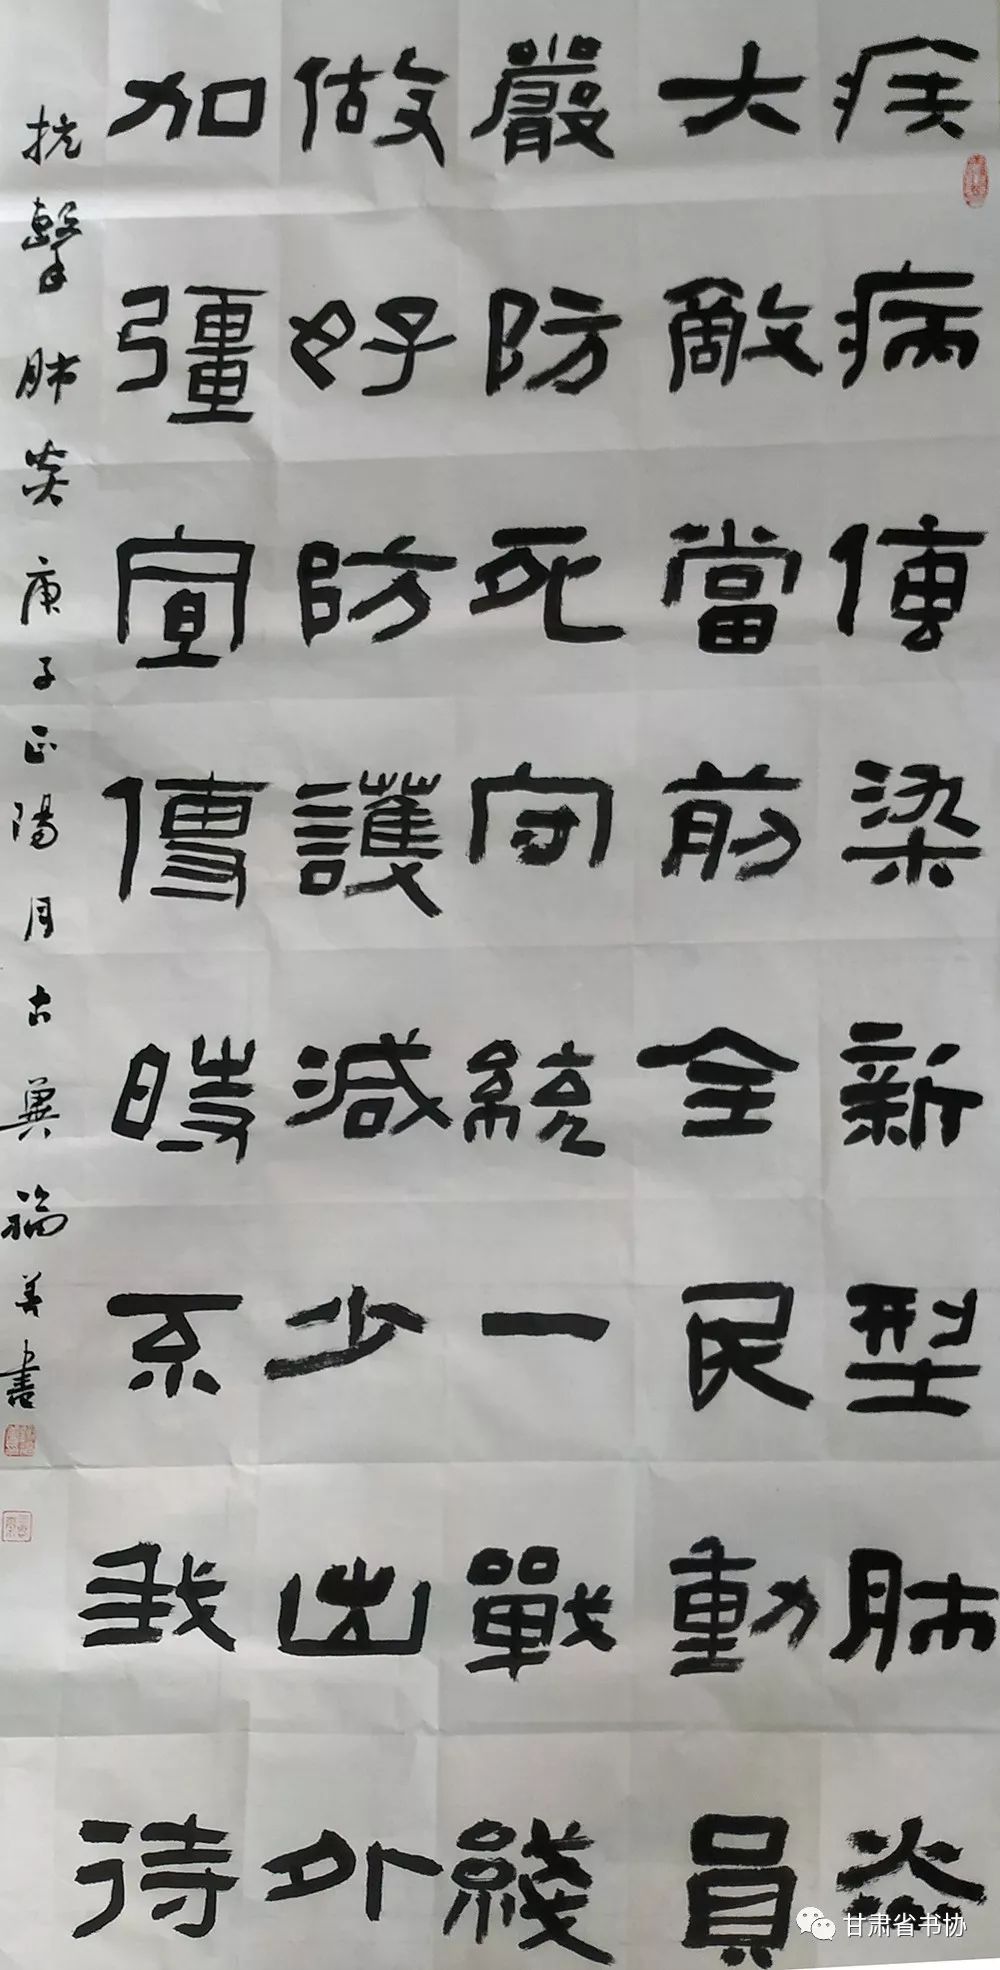 疾病傳染新型肺炎
大敵當前全民動員
嚴防死守統一戰綫
做好防護減少出外
加彊宣傳時不我待
抗擊肺炎庚子正陽月古冀福美書
甘肃省书协